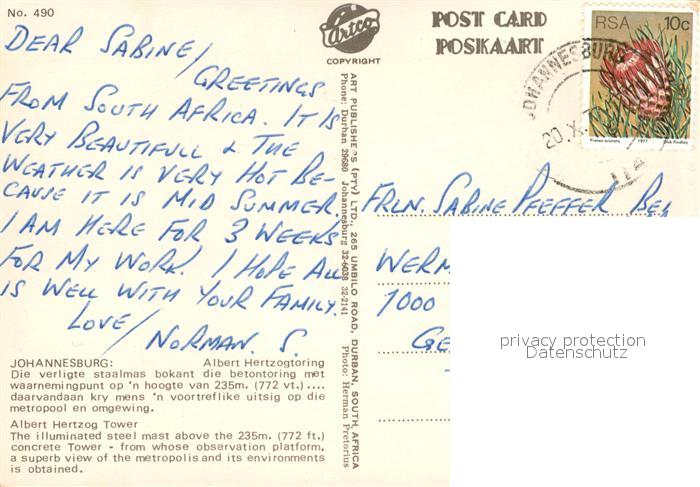 No. 490
DEAR SABINE/
GREETINGS
FROM SOUTH AFRICA. IT IS
VERY BEAUTIFULL & THE
WEATHER IS VERY HOT BE-
CAUSE IT IS MID SUMMER.
I AM HERE FOR 3 WEEKS
FOR MY WORK. I HOPE ALL
IS WELL WITH YOUR FAMILY.
LOVE/
NORMAN. S.
JOHANNESBURG: Albert Hertzogtoring
Die verligte staalmas bokant die betontoring met
waarnemingpunt op 'n hoogte van 235m. (772 vt.)....
daarvandaan kry mens 'n voortreflike uitsig op die
metropool en omgewing.
Albert Hertzog Tower
The illuminated steel mast above the 235m. (772 ft.)
concrete Tower - from whose observation platform,
a superb view of the metropolis and its environments
is obtained.
Artco
COPYRIGHT
ART PUBLISHERS (PTY) LTD., 265 UMBILO ROAD, DURBAN, SOUTH AFRICA
Phone: Durban 29680 Johannesburg 32-6038 32-2141 Photo: Herman Pretorius
POST CARD
POSKAART
RSA 10c
1977 Dick Findlay
JOHANNESBURG
20.X
FRLN. SABINE PFEFFER BEI
WERM
1000
GE
privacy protection
Datenschutz